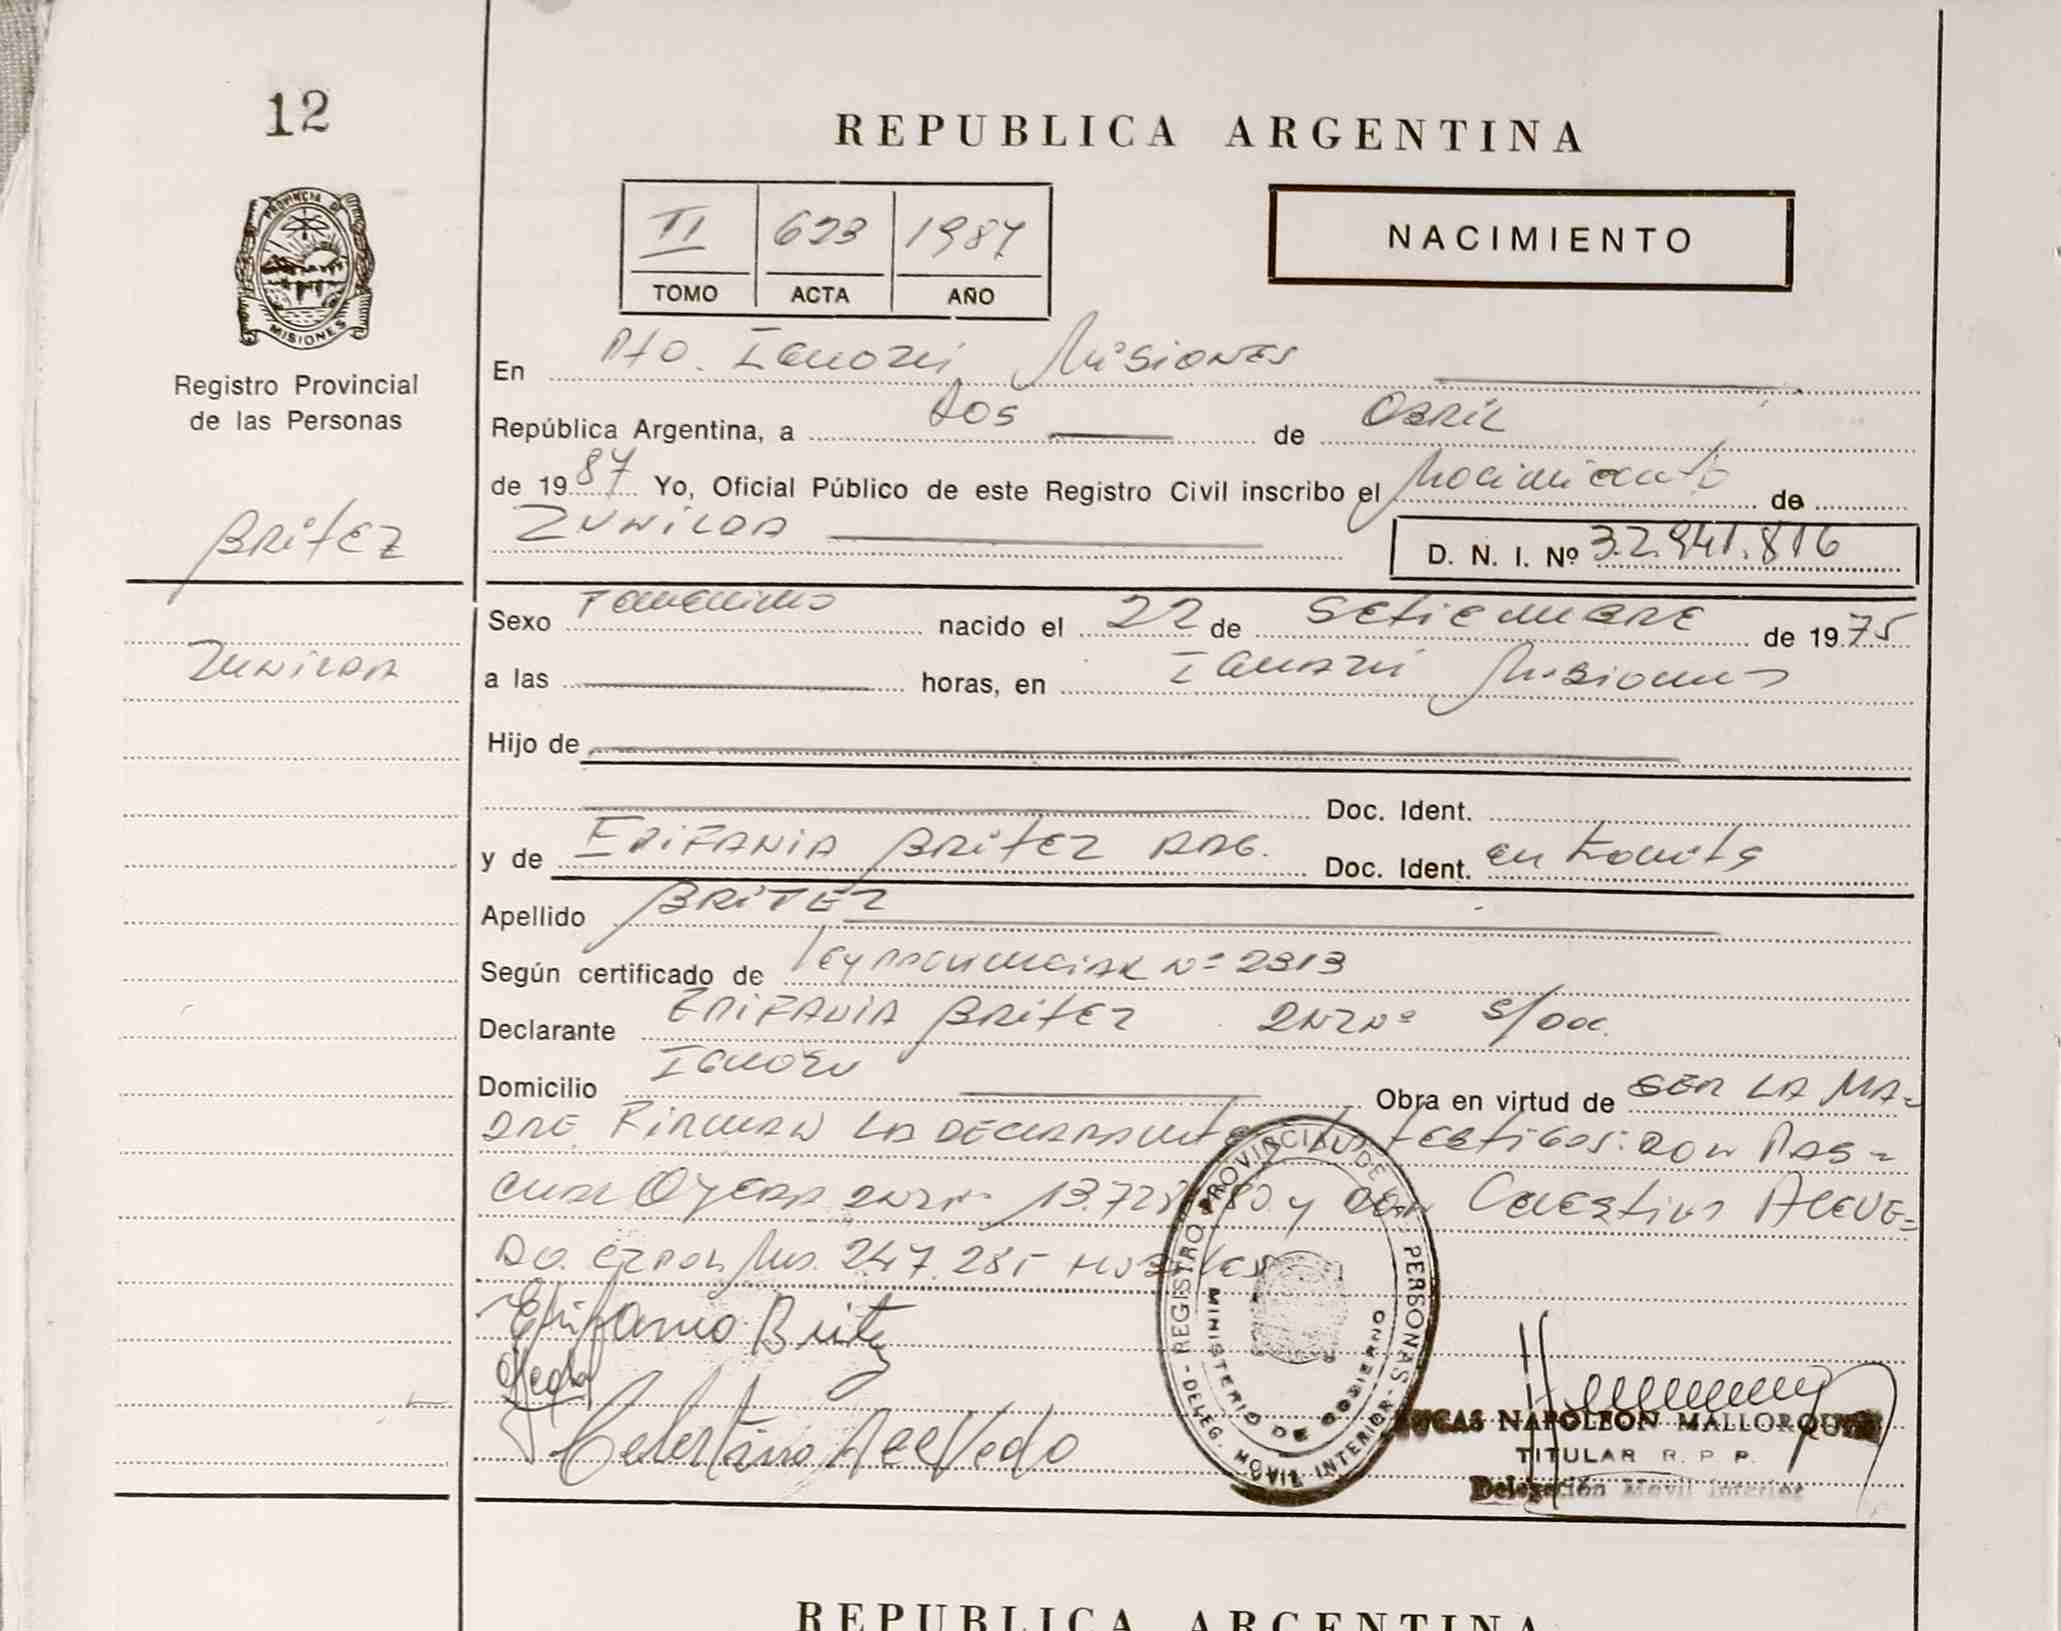 12
REPUBLICA ARGENTINA
II 623 1987
TOMO ACTA AÑO
NACIMIENTO
PROVINCIA DE MISIONES
Registro Provincial
de las Personas
Britez
Zunilda
En Pto. Iguazú Misiones
República Argentina, a dos de Abril
de 1987 Yo, Oficial Público de este Registro Civil inscribo el Nacimiento de
Zunilda D. N. I. Nº 32.941.816
Sexo Femenino nacido el 22 de Setiembre de 1975
a las horas, en Iguazú Misiones
Hijo de
Doc. Ident.
y de Epifania Britez ARG. Doc. Ident. en tramite
Apellido BRITEZ
Según certificado de ley provincial Nº 2313
Declarante Epifania Britez s/doc.
Domicilio Iguazu Obra en virtud de SER LA MA-
DRE Firman la declarante testigos: DON PAS-
CUAL 13.728 80 y don Celestino ACEVE-
DO. Mis. 247.285
Epifania Britez
Ojeda
Celestino Acevedo
REGISTRO PROVINCIAL DE LAS PERSONAS
MINISTERIO DE GOBIERNO
DELEG. MOVIL INTERIOR
LUCAS NAPOLEON MALLORQUIN
TITULAR R. P. P.
Delegación Movil Interior
REPUBLICA ARGENTINA